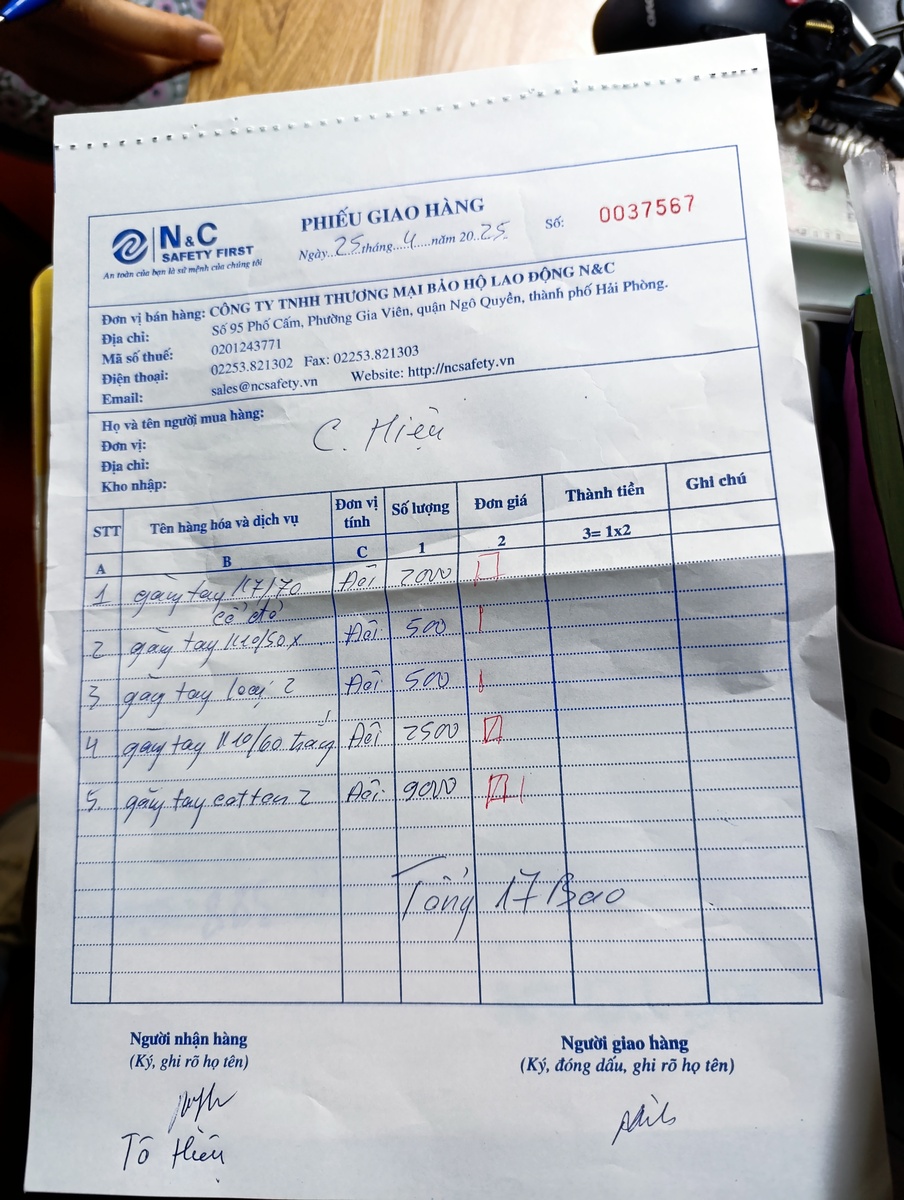 N&C
SAFETY FIRST
An toàn của bạn là sứ mệnh của chúng tôi
PHIẾU GIAO HÀNG
Ngày 25 tháng 4 năm 2025
Số: 0037567
Đơn vị bán hàng: CÔNG TY TNHH THƯƠNG MẠI BẢO HỘ LAO ĐỘNG N&C
Địa chỉ: Số 95 Phố Cấm, Phường Gia Viên, quận Ngô Quyền, thành phố Hải Phòng.
Mã số thuế: 0201243771
Điện thoại: 02253.821302 Fax: 02253.821303
Email: sales@ncsafety.vn Website: http://ncsafety.vn
Họ và tên người mua hàng:
Đơn vị: C. Hiệu
Địa chỉ:
Kho nhập:
STT Tên hàng hóa và dịch vụ Đơn vị tính Số lượng Đơn giá Thành tiền Ghi chú
A B C 1 2 3= 1x2
1 găng tay K7/70 Đôi 2000
cổ đỏ
2 găng tay K10/50x Đôi 500
3 găng tay loại 2 Đôi 500
4 găng tay K10/60 trắng Đôi 2500
5. găng tay cotton 2 Đôi 9000
Tổng 17 Bao
Người nhận hàng
(Ký, ghi rõ họ tên)
Tô Hiệu
Người giao hàng
(Ký, đóng dấu, ghi rõ họ tên)